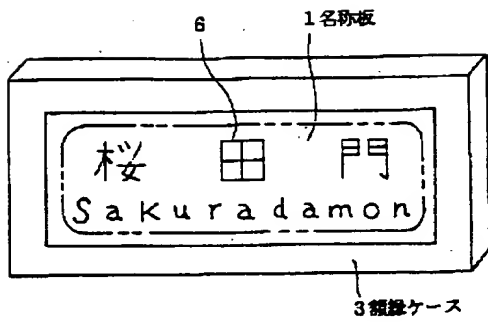 6 1名称板
桜 田 門
Sakuradamon
3額縁ケース